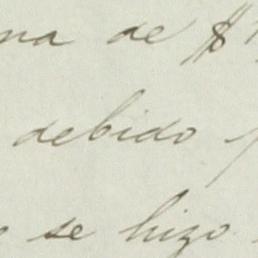 na de $
debido
se hizo